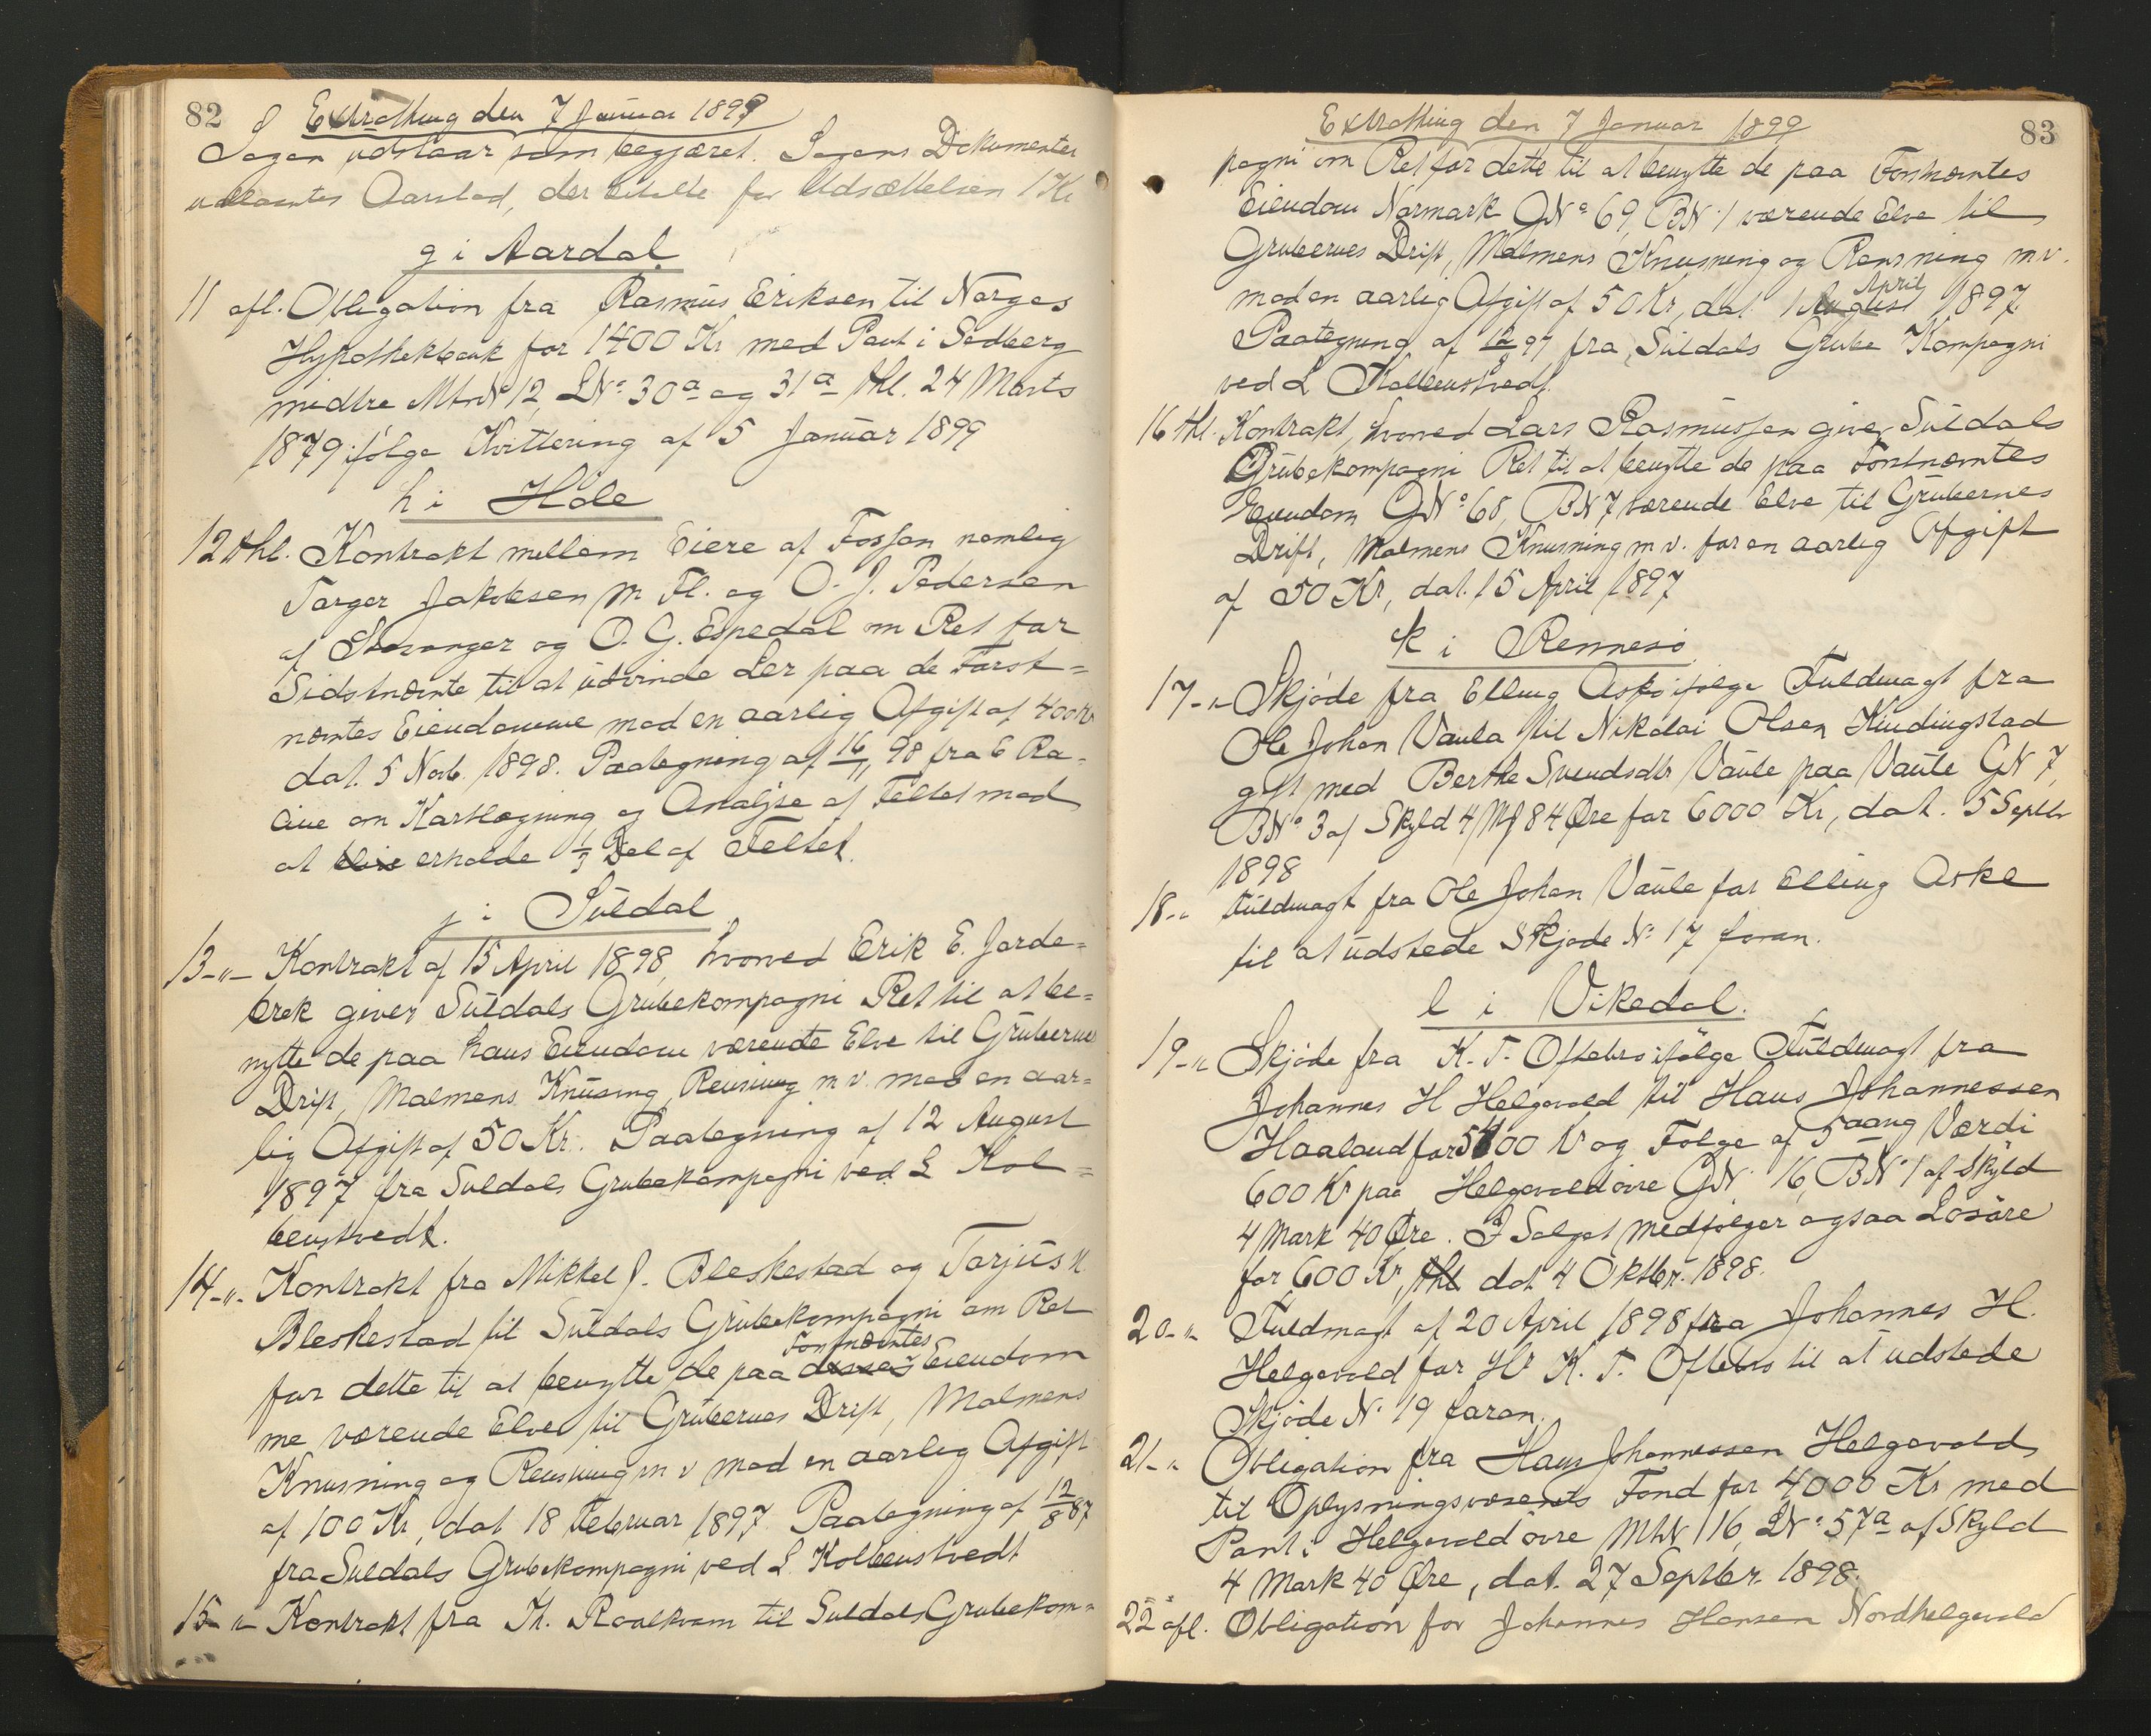 82 Extrathing den 7 Januar 1899
Sagen udstaar som begjæret. Sagens Dokumenter
udlaantes Aarstad, der bitalte for Udsættelsen 1 Kr
g i Aardal
11 afl. Obligation fra Rasmus Eriksen til Norges
Hypothekbank for 1400 Kr med Pant i Sedberg
midtre MtrN 12, LNo 30a og 31a thl. 24 Marts
1879 ifølge Kvittering af 5 Januar 1899
h i Høle
12 thl. Kontrakt mellem Eiere af Fossan nemlig
Targer Jakobsen m Fl. og O. J. Pedersen
af Stavanger og O. G. Espedal om Ret for
Sidstnævnte til at udvinde Ler paa de Først=
nævntes Eiendomme mod en aarlig Afgift af 400 Kr
dat. 5 Novb. 1898. Paategning af 16/11 98 fra E Ra-
om Kartlægning og Analyse af Feltet mod
at blive erholde 1/3 Del af Feltet.
j i Suldal
13 -"- Kontrakt af 15 April 1898, hvorved Erik E. Jorde=
brek giver Suldals Grubekompagni Ret til at be=
nytte de paa hans Eiendom værende Elve til Grubernes
Drift, Malmens Knusing, Rensing m v. mod en aar=
lig Afgift af 50 Kr. Paategning af 12 August
1897 fra Suldals Grubekompagni ved L Kol=
benstvedt.
14 -"- Kontrakt fra Mikkel J. Bleskestad og Torjus N
Bleskestad til Suldals Grubekompagni om Ret
for dette til at benytte de paa disses Førstnævntes Eiendom
me værende Elve til Grubernes Drift, Malmens
Knusning og Rensning m v mod en aarlig Afgift
af 100 Kr, dat 18 Februar 1897. Paategning af 12/8 87
fra Suldals Grubekompagni ved L. Kolbenstvedt
15 -"- Kontrakt fra Th. Roalkvam til Suldals Grubekom=
Extrathing den 7 Januar 1899 83
pagni om Ret for dette til at benytte de paa Førstnævntes
Eiendom Narmark GNo 69, BN 1 værende Elve til
Grubernes Drift, Malmens Knusning og Rensning m v.
mod en aarlig Afgift af 50 Kr, dat 1 August April 1897.
Paategning af 12/8 97 fra Suldals Grube Kompagni
ved L Kolbenstvedt.
16 thl. Kontrakt, hvorved Lars Rasmussen giver Suldals
Grubekompagni Ret til at benytte de paa Førstnævntes
Eiendom GNo 68, BN 7 værende Elve til Grubernes
Drift, Malmens Knusning m v. for en aarlig Afgift
af 50 Kr, dat. 15 April 1897
k i Rennesø
17 -"- Skjøde fra Elling Aske ifølge Fuldmagt fra
Ole Johan Vaula til Nikolai Olsen Kindingstad
gift med Berthe Svendsdtr Vaule paa Vaule GN 7,
BNo 3 af Skyld 4 Mk 84 Øre for 6000 Kr, dat. 5 Septbr
1898
18 -"- Fuldmagt fra Ole Johan Vaule for Elling Aske
til at udstede Skjøde No 17 foran.
l i Vikedal.
19 -"- Skjøde fra K. T. Oftebro ifølge Fuldmagt fra
Johannes H Helgevold til Hans Johannessen
Haaland for 5400 Kr og Følge af 5 aarig Værdi
600 Kr paa Helgevold øvre GN. 16, BNo 1 af Skyld
4 Mark 40 Øre. I Salget medfølger ogsaa Løsøre
for 600 Kr, thl dat 4 Oktbr. 1898.
20 -"- Fuldmagt af 20 April 1898 fra Johannes H.
Helgevold for Hr K. T. Oftebro til at udstede
Skjøde No 19 foran.
21 -"- Obligation fra Hans Johannessen Helgevold
til Oplysningsvæsenets Fond for 4000 Kr med
Pant i Helgevold øvre MtrN 116, LNo 57a af Skyld
4 Mark 40 Øre, dat. 27 Septbr. 1898.
22 afl. Obligation for Johannes Hansen Nordhelgevold